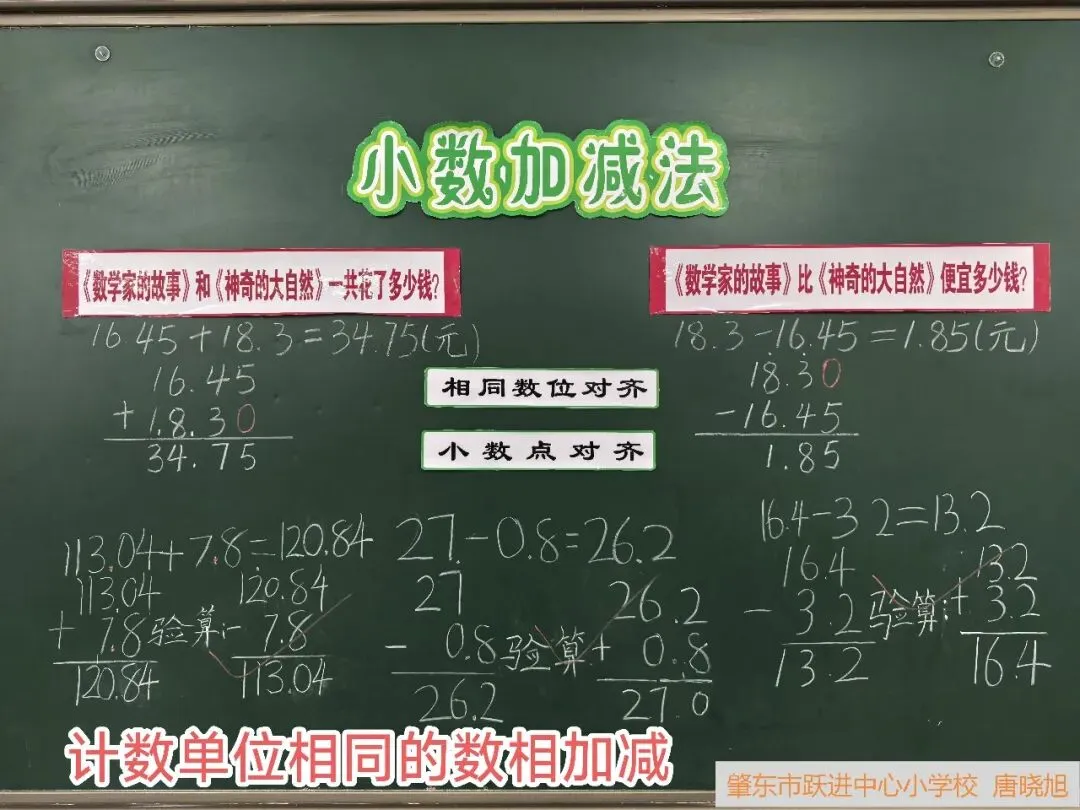 小数加减法
《数学家的故事》和《神奇的大自然》一共花了多少钱?
16.45+18.3=34.75(元)
16.45
+18.30
34.75
相同数位对齐
小数点对齐
《数学家的故事》比《神奇的大自然》便宜多少钱?
18.3-16.45=1.85(元)
18.30
-16.45
1.85
113.04+7.8=120.84
113.04
+ 7.8
120.84
验算:
120.84
- 7.8
113.04
27-0.8=26.2
27
- 0.8
26.2
验算
26.2
+ 0.8
27.0
16.4-3.2=13.2
16.4
- 3.2
13.2
验算:
13.2
+ 3.2
16.4
计数单位相同的数相加减
肇东市跃进中心小学校 唐晓旭